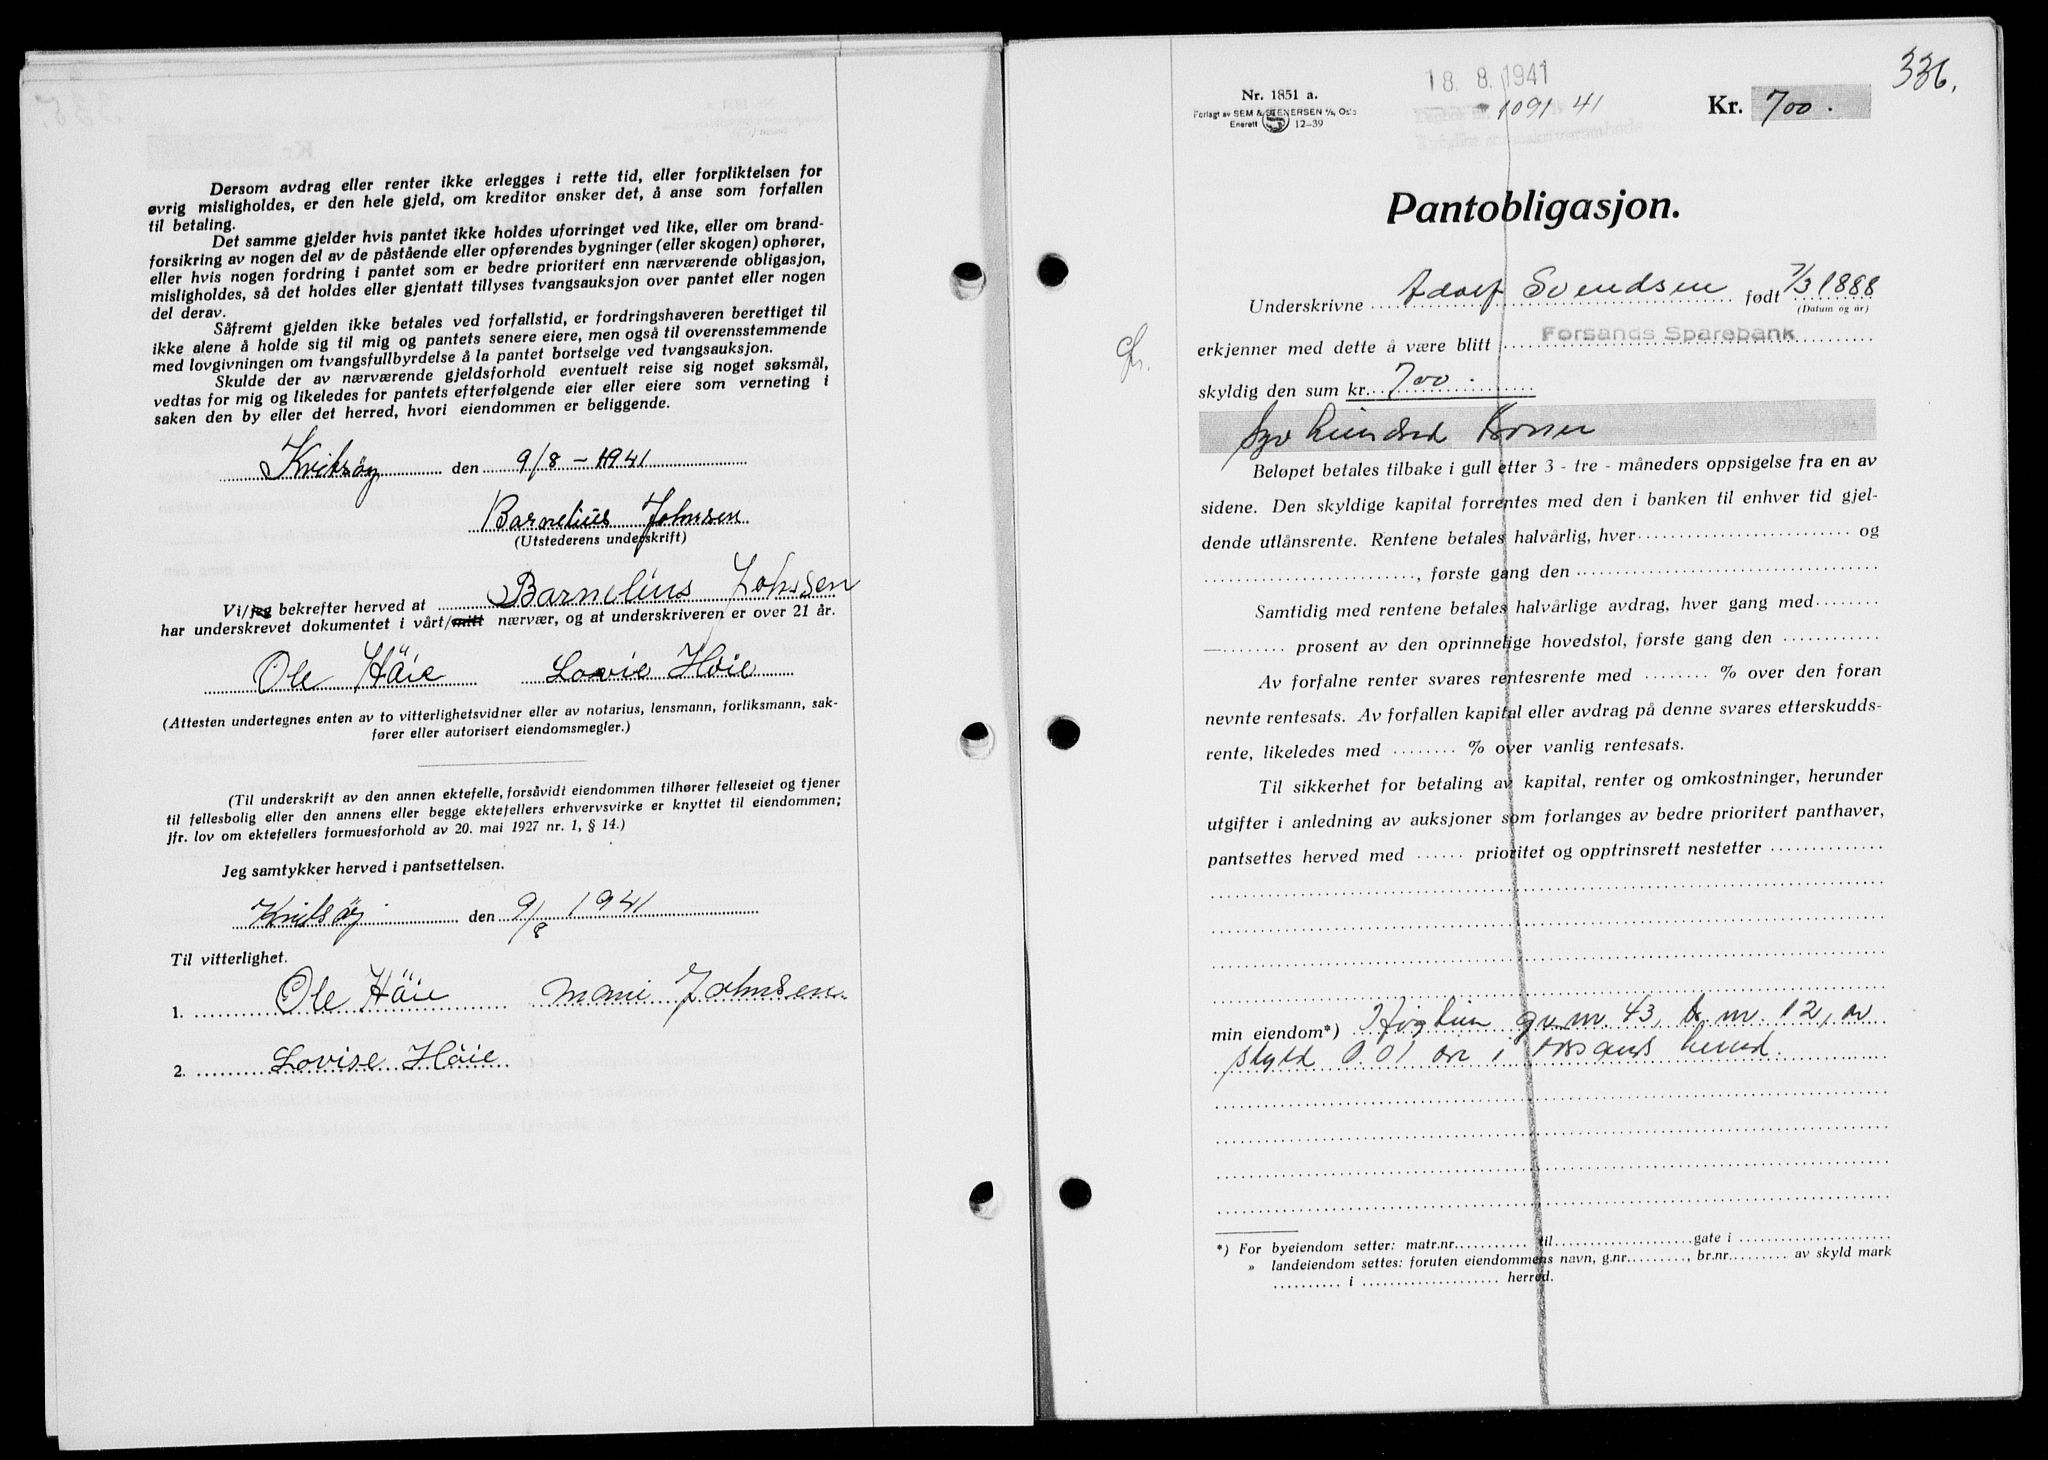 Dersom avdrag eller renter ikke erlegges i rette tid, eller forpliktelsen for
øvrig misligholdes, er den hele gjeld, om kreditor ønsker det, å anse som forfallen
til betaling.
Det samme gjelder hvis pantet ikke holdes uforringet ved like, eller om brand-
forsikring av nogen del av de påstående eller opførendes bygninger (eller skogen) ophører,
eller hvis nogen fordring i pantet som er bedre prioritert enn nærværende obligasjon,
misligholdes, så det holdes eller gjentatt tillyses tvangsauksjon over pantet eller nogen
del derav.
Såfremt gjelden ikke betales ved forfallstid, er fordringshaveren berettiget til
ikke alene å holde sig til mig og pantets senere eiere, men også til overensstemmende
med lovgivningen om tvangsfullbyrdelse å la pantet bortselge ved tvangsauksjon.
Skulde der av nærværende gjeldsforhold eventuelt reise sig noget søksmål,
vedtas for mig og likeledes for pantets efterfølgende eier eller eiere som verneting i
saken den by eller det herred, hvori eiendommen er beliggende.
Kvitsöy den 9/8 - 1941
Barnelius Johnsen
(Utstederens underskrift)
Vi/jeg bekrefter herved at Barnelius Johnsen
har underskrevet dokumentet i vårt/mitt nærvær, og at underskriveren er over 21 år.
Ole Häie Lovie Höie
(Attesten undertegnes enten av to vitterlighetsvidner eller av notarius, lensmann, forliksmann, sak-
fører eller autorisert eiendomsmegler.)
(Til underskrift av den annen ektefelle, forsåvidt eiendommen tilhører felleseiet og tjener
til fellesbolig eller den annens eller begge ektefellers erhvervsvirke er knyttet til eiendommen;
jfr. lov om ektefellers formuesforhold av 20. mai 1927 nr. 1, § 14.)
Jeg samtykker herved i pantsettelsen.
Kvitsöy den 9/8 1941
Til vitterlighet.
1. Ole Häie Johnsen
2. Lovise Höie
336.
18. 8. 1941
Nr. 1851 a.
Forlagt av SEM & STENERSEN A/S, Oslo
Enerett S 12-39
1091 41
Kr. 700.
Pantobligasjon.
Underskrivne Adolf Svendsen født 7/3 1888
(Datum og år)
erkjenner med dette å være blitt Forsands Sparebank
skyldig den sum kr. 700.
Syv hundred kroner
Beløpet betales tilbake i gull etter 3 - tre - måneders oppsigelse fra en av
sidene. Den skyldige kapital forrentes med den i banken til enhver tid gjel-
dende utlånsrente. Rentene betales halvårlig, hver og
, første gang den
Samtidig med rentene betales halvårlige avdrag, hver gang med
— prosent av den oprinnelige hovedstol, første gang den
Av forfalne renter svares rentesrente med % over den foran
nevnte rentesats. Av forfallen kapital eller avdrag på denne svares etterskudds-
rente, likeledes med % over vanlig rentesats.
Til sikkerhet for betaling av kapital, renter og omkostninger, herunder
utgifter i anledning av auksjoner som forlanges av bedre prioritert panthaver,
pantsettes herved med prioritet og opptrinsrett nestetter
min eiendom*) gr. nr. 43, br. nr. 12, av
skyld 0.01 øre i Forsands herred.
*) For byeiendom setter: matr.nr. til gate i
» landeiendom settes: foruten eiendommens navn, g.nr. , br.nr. av skyld mark
i herred.